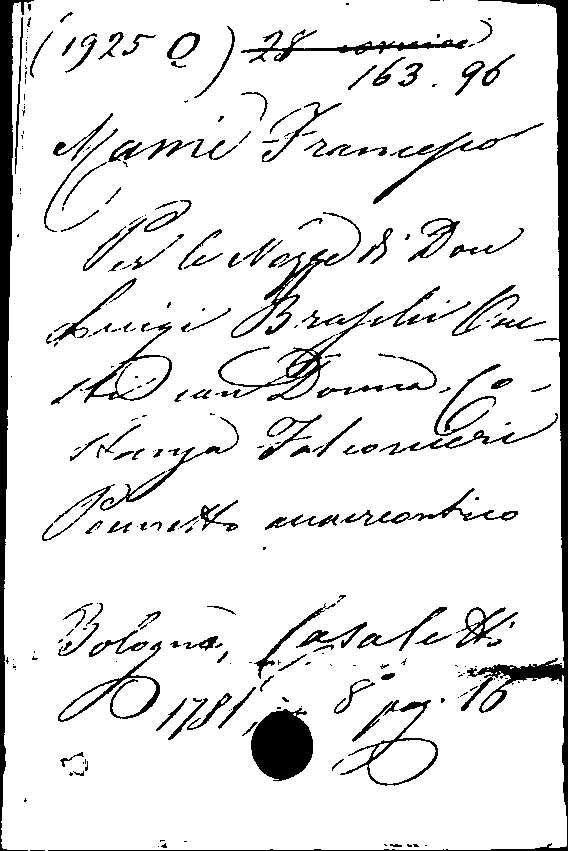 (1925 Q) 28 cornice
163.96
Mami Francesco
Per le Nozze di Don
Luigi Braschi One-
sti con Donna Co-
stanza Falconieri
Poemetto anacreontico
Bologna, Casaletti
1781, in 8° pag. 16